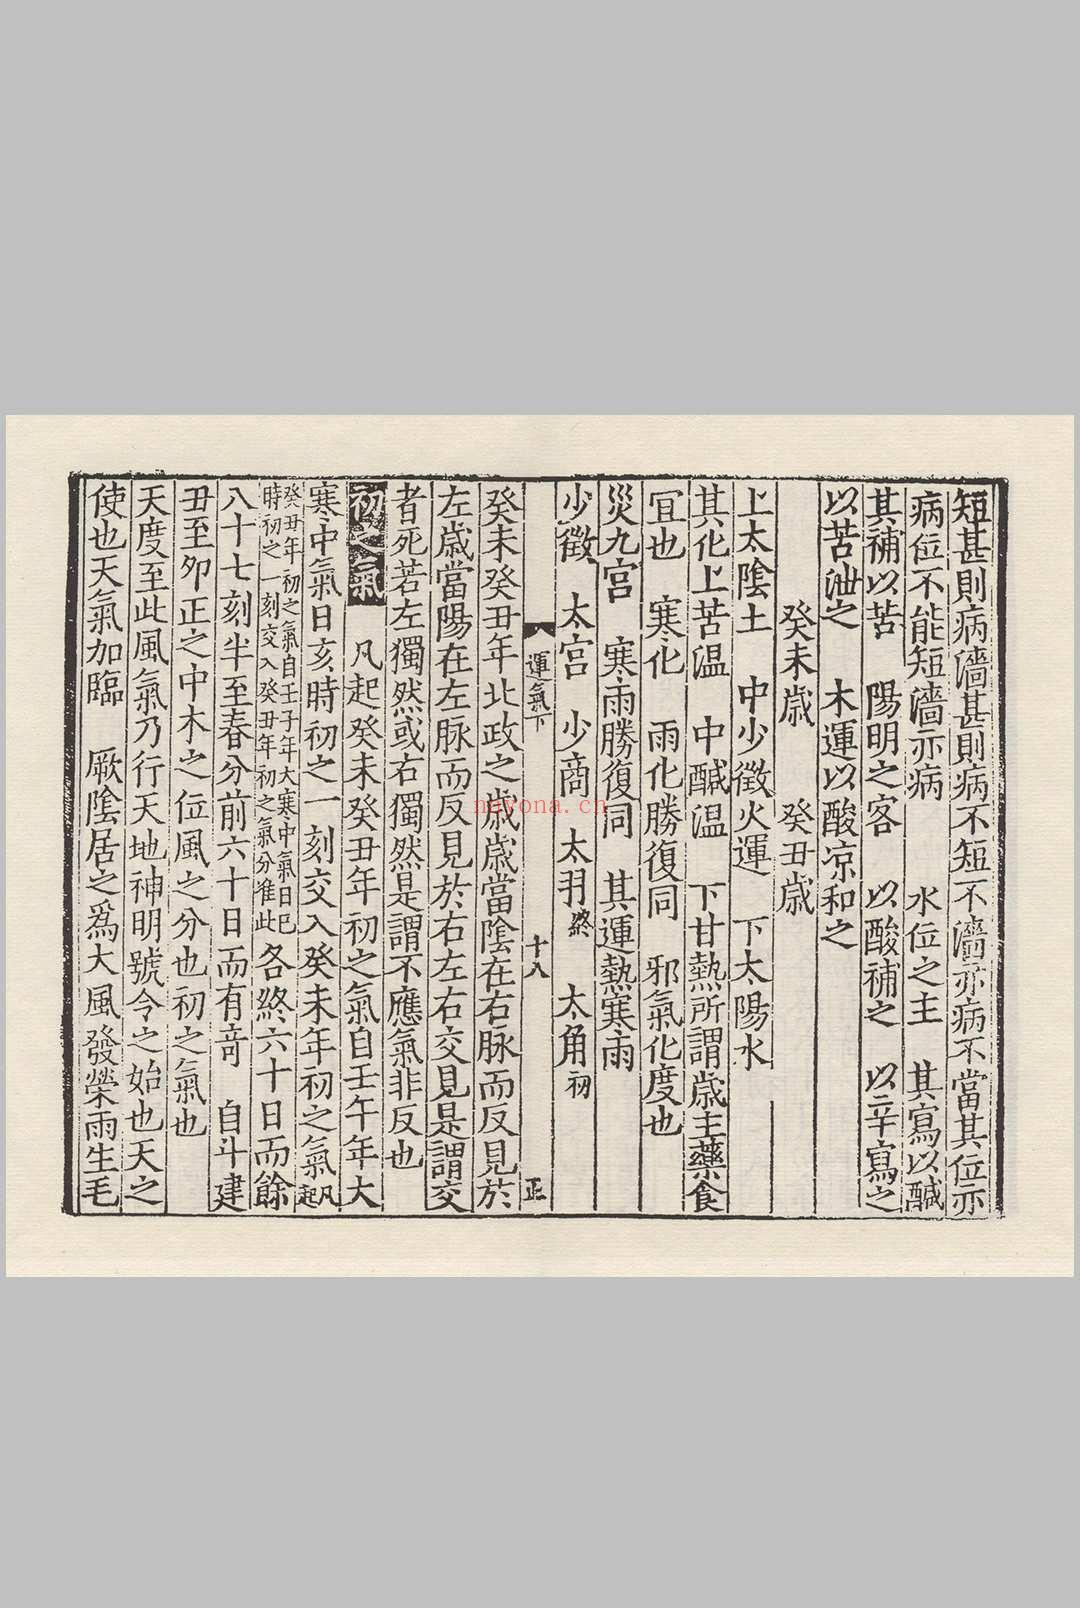 短甚則病濇甚則病不短不濇亦病不當其位亦
病位不能短濇亦病　水位之主　其寫以醎
其補以苦　陽明之客　以酸補之　以辛寫之
以苦泄之　木運以酸凉和之
癸未歲　癸丑歲
上太隂土　中少徵火運　下太陽水
其化上苦温　中醎温　下甘熱所謂歲主藥食
冝也　寒化　雨化勝復同　邪氣化度也
災九宮　寒雨勝復同　其運熱寒雨
少徵　太宫　少商　太羽終　太角初
運氣下　十八　正
癸未癸丑年北政之歲歲當隂在右脉而反見於
左歲當陽在左脉而反見於右左右交見是謂交
者死若左獨然或右獨然是謂不應氣非反也
初之氣　凡起癸未癸丑年初之氣自壬午年大
寒中氣日亥時初之一刻交入癸未年初之氣凡起
癸丑年初之氣自壬子年大寒中氣日巳
時初之一刻交入癸丑年初之氣分准此
各終六十日而餘
八十七刻半至春分前六十日而有竒　自斗建
丑至夘正之中木之位風之分也初之氣也
天度至此風氣乃行天地神明號令之始也天之
使也天氣加臨　厥隂居之爲大風發榮雨生毛
nayona.cn